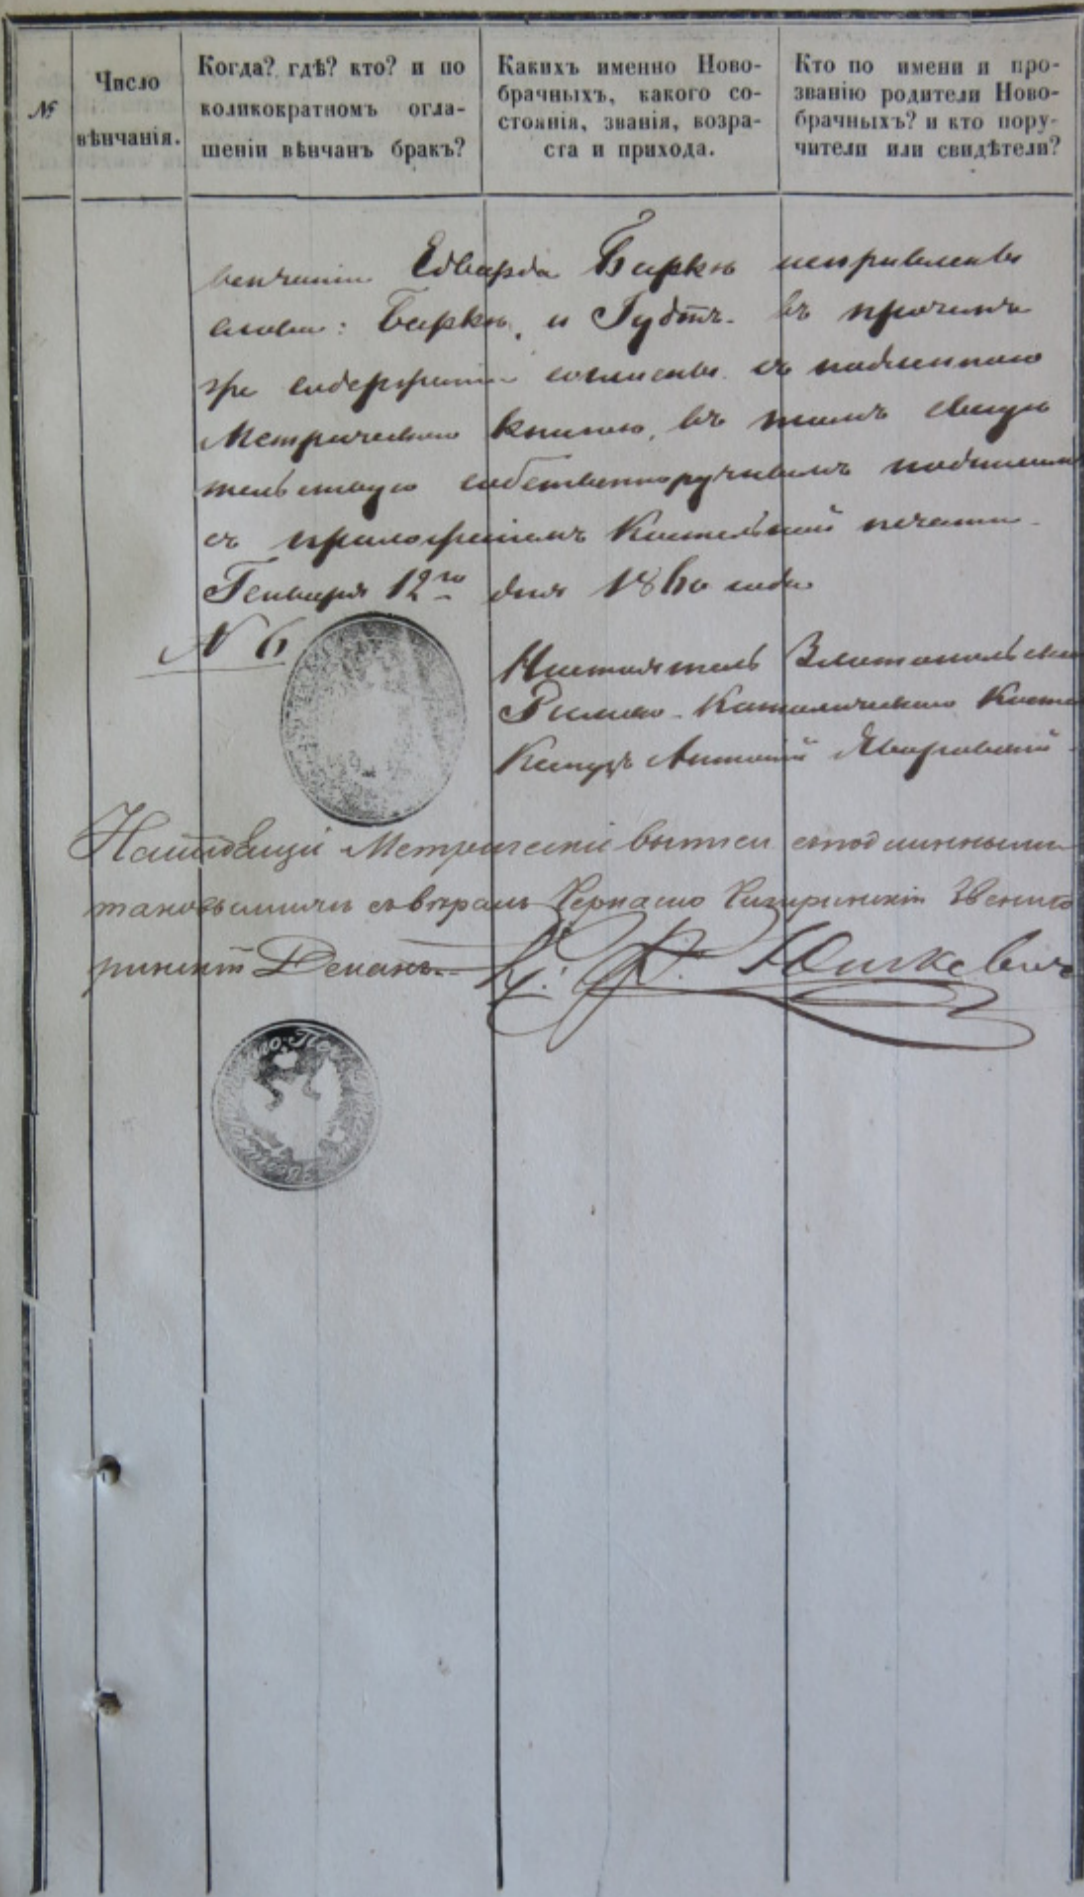 №
Число
вѣнчанія.
Когда? гдѣ? кто? и по
коликократномъ огла-
шеніи вѣнчанъ бракъ?
Какихъ именно Ново-
брачныхъ, какого со-
стоянія, званія, возра-
ста и прихода.
Кто по имени и про-
званію родители Ново-
брачныхъ? и кто пору-
чители или свидѣтели?
венчании Едварда Баркъ исправлены
слова: Баркъ, и Губтъ. въ прочемъ
же содержании согласны съ подлинною
Метрическою книгою, въ томъ свидѣ
тельствую собственноручнымъ подписомъ
съ приложеніемъ Костельной печати
Генваря 12го дня 1860 года
N 6
Настоятель Златопольска
Римско-Католическаго Косте
Ксендзъ Антоній Яворовский
Настоящіе Метрическіе выписи съ подлинными
таковымими сверялъ Черкаско Чигиринскій Звениго
родскій Деканъ К: Ф. Юшкевичъ